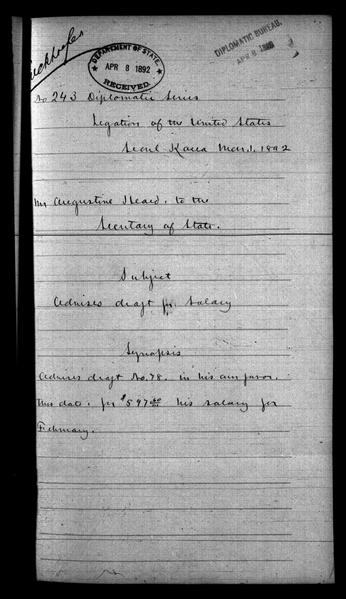 DEPARTMENT OF STATE.
APR 8 1892
RECEIVED.
DIPLOMATIC BUREAU.
APR 8 1892
No 243 Diplomatic Series
Legation of the United States
Seoul Korea Mar. 1. 1892
Mr Augustine Heard. to the
Secretary of State.
Subject
Advises draft for Salary
Synopsis
Advises draft No. 78. in his own favor.
this date. for $597 his salary for
February.